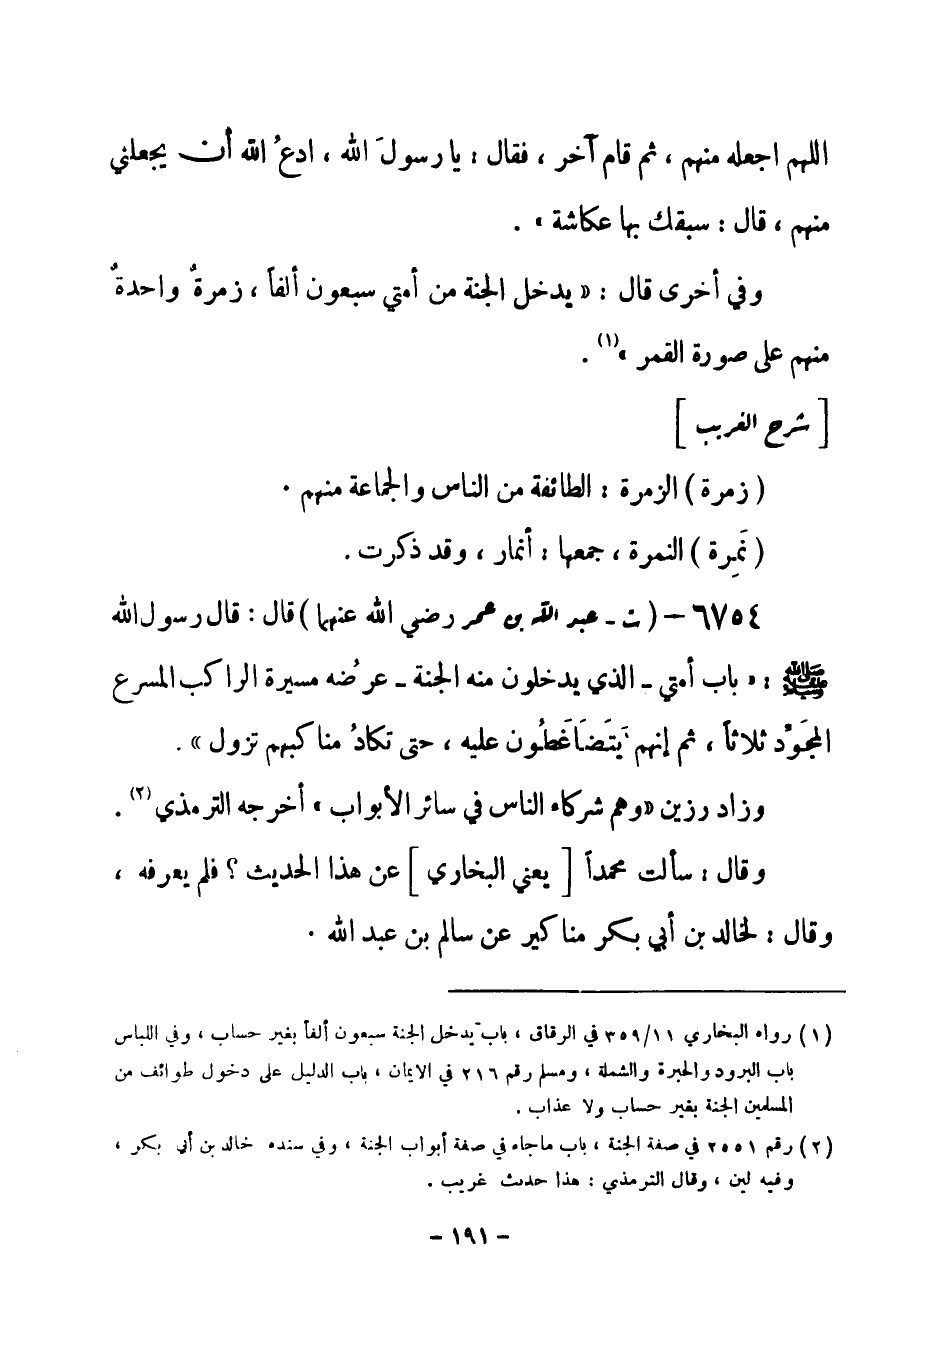 اللهم اجعله منهم ، ثم قام آخر ، فقال : يا رسولَ الله ، ادعُ الله أن يجعلني
منهم ، قال : سبقك بها عكاشة » .
وفي أخرى قال : « يدخل الجنة من أمتي سبعون ألفاً ، زمرةٌ واحدةٌ
منهم على صورة القمر »(١) .
[ شرح الغريب ]
( زمرة ) الزمرة : الطائفة من الناس والجماعة منهم .
( نَمِرة ) النمرة ، جمعها : أنمار ، وقد ذكرت .
٦٧٥٤ – ( ت ـ عبد الله بن عمر رضي الله عنهما ) قال : قال رسول الله
ﷺ : « باب أمتي ـ الذي يدخلون منه الجنة ـ عرضُه مسيرة الراكب المسرع
المجَوِّد ثلاثاً ، ثم إنهم يَتَضَاغَطُون عليه ، حتى تكادُ مناكبهم تزول » .
وزاد رزين «وهم شركاء الناس في سائر الأبواب » أخرجه الترمذي(٢) .
وقال : سألت محمداً [ يعني البخاري ] عن هذا الحديث ؟ فلم يعرفه ،
وقال : لخالد بن أبي بكر مناكير عن سالم بن عبد الله .
(١) رواه البخاري ٣٥٩/١١ في الرقاق ، باب يدخل الجنة سبعون ألفاً بغير حساب ، وفي اللباس
باب البرود والحبرة والشملة ، ومسلم رقم ٢١٦ في الايمان ، باب الدليل على دخول طوائف من
المسلمين الجنة بغير حساب ولا عذاب .
(٢) رقم ٢٥٥١ في صفة الجنة ، باب ماجاء في صفة أبواب الجنة ، وفي سنده خالد بن أبي بكر ،
وفيه لين ، وقال الترمذي : هذا حديث غريب .
- ١٩١ -